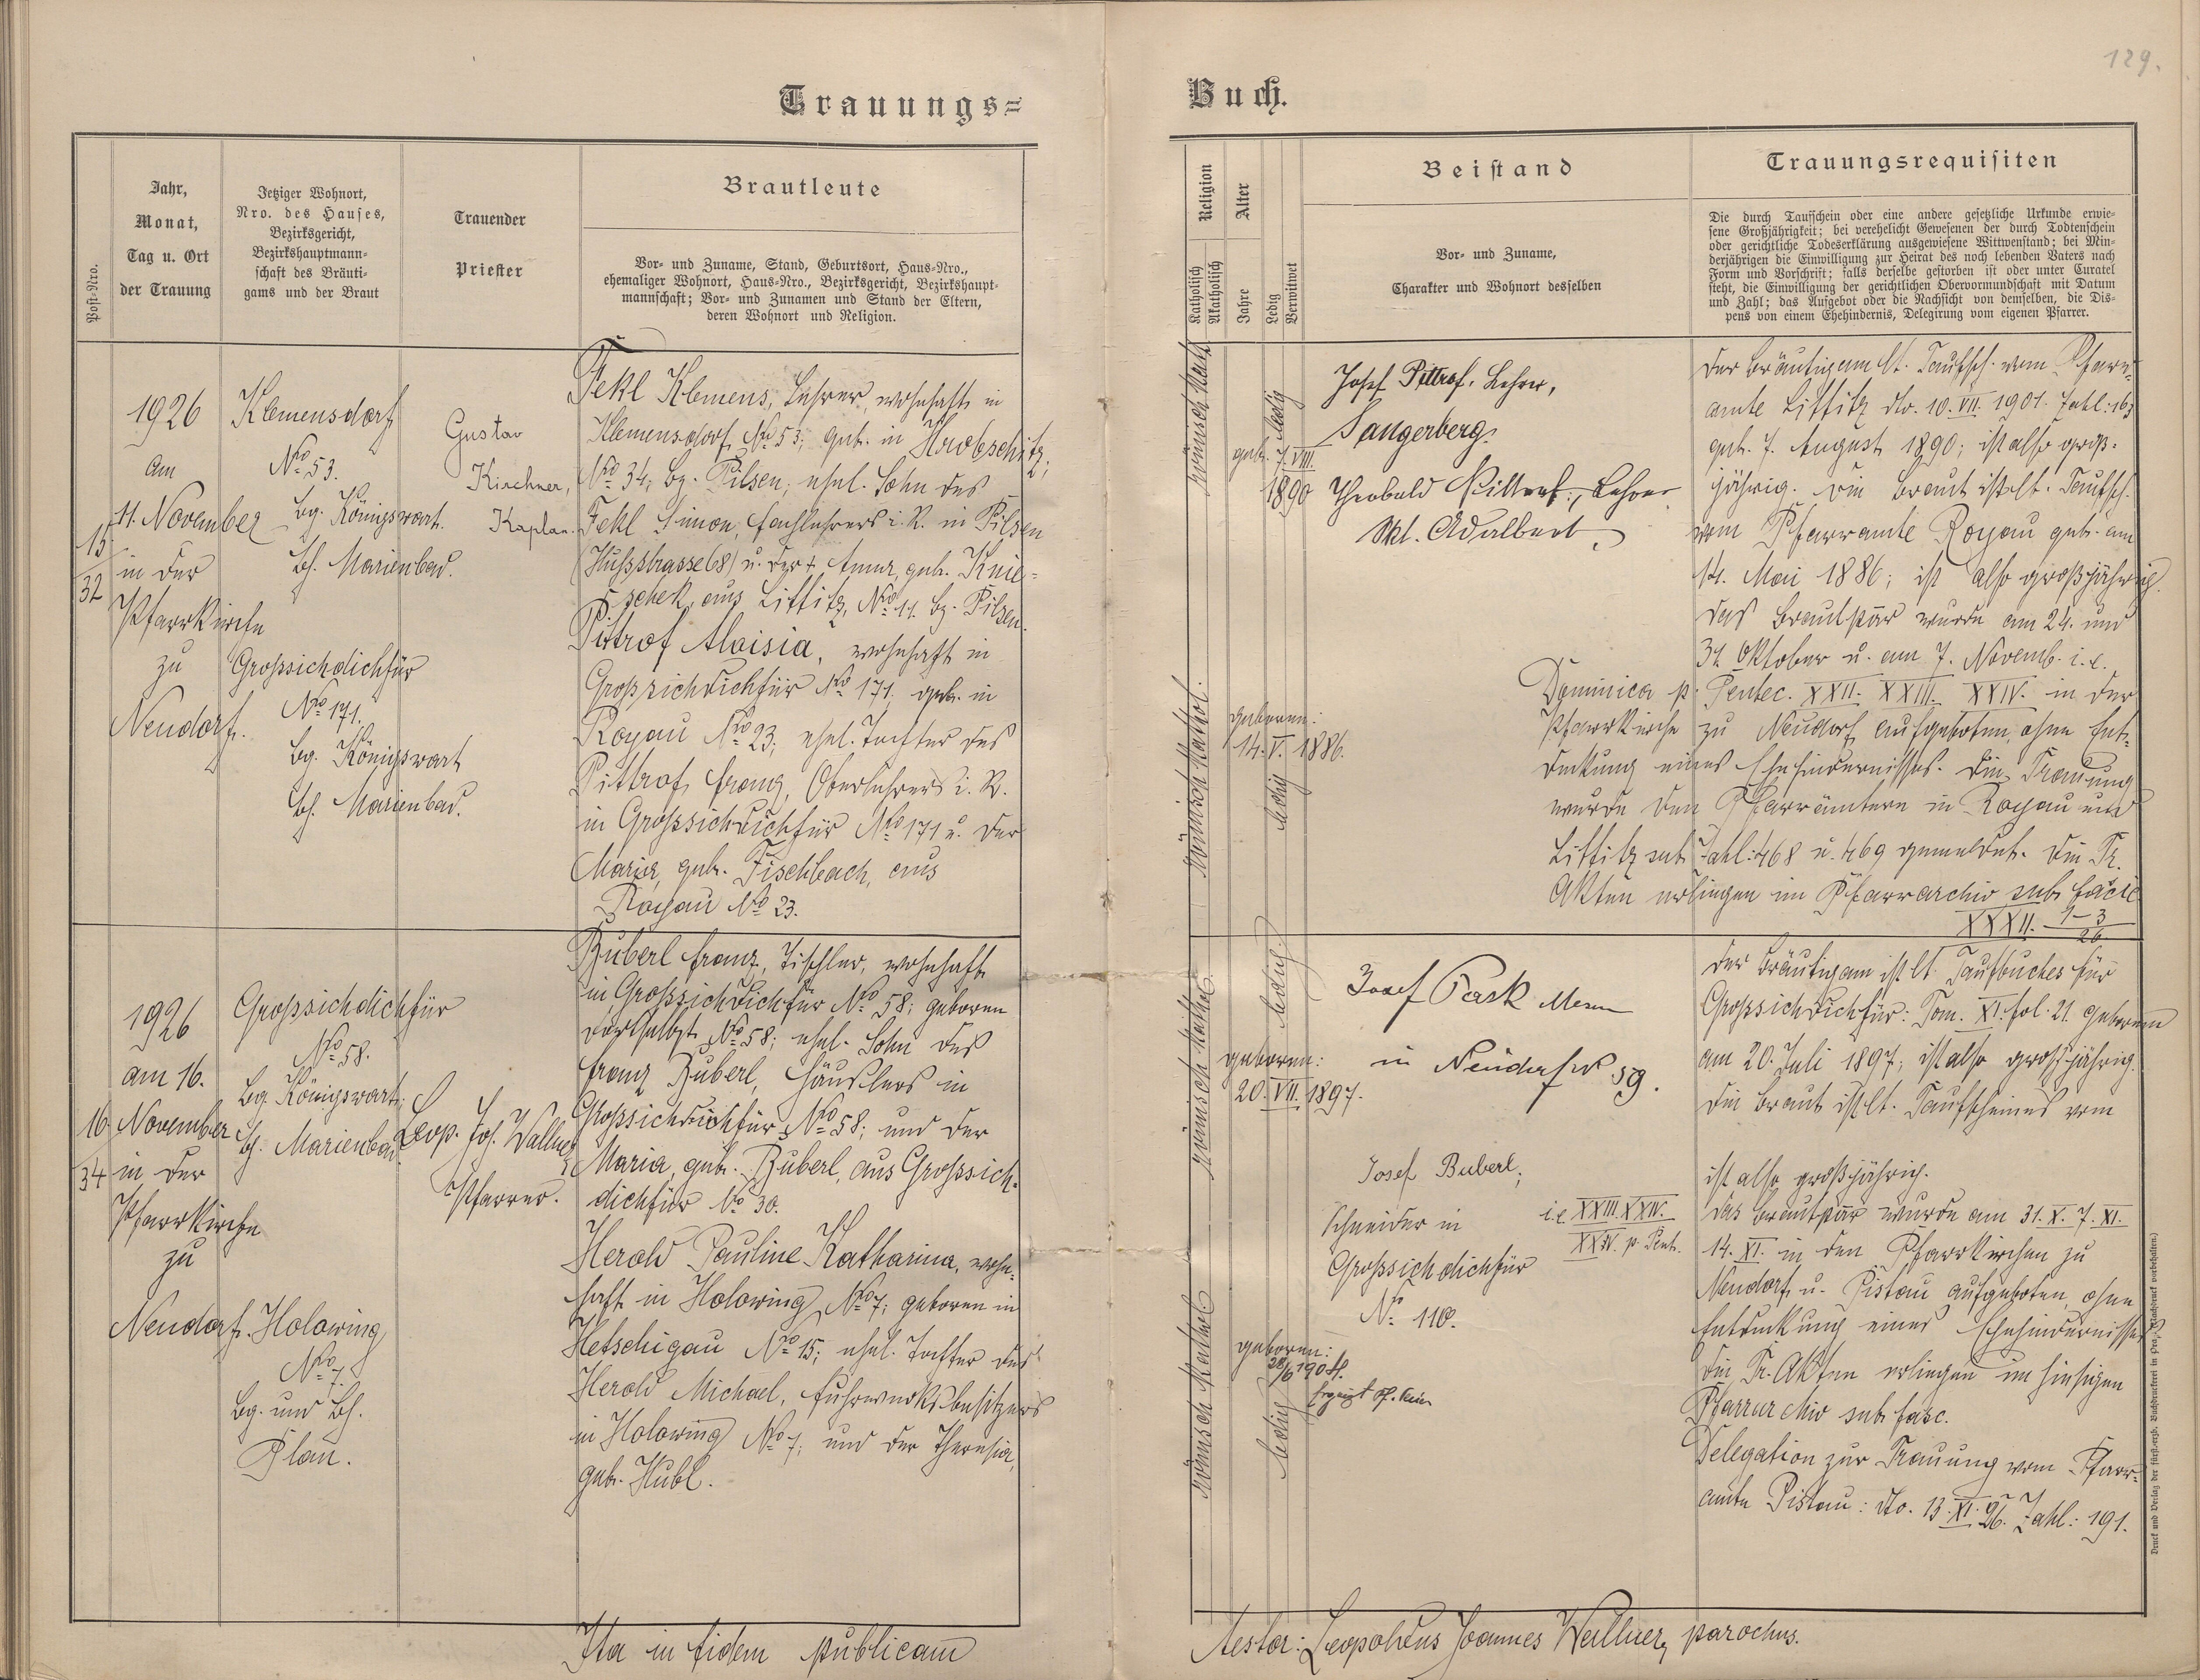 129.
Trauungs=
Buch.
Post-Nro.
Jahr,
Monat,
Tag u. Ort
der Trauung
Jetziger Wohnort,
Nro. des Hauses,
Bezirksgericht,
Bezirkshauptmann-
schaft des Bräuti-
gams und der Braut
Trauender
Priester
Brautleute
Vor- und Zuname, Stand, Geburtsort, Haus-Nro.,
ehemaliger Wohnort, Haus-Nro., Bezirksgericht, Bezirkshaupt-
mannschaft; Vor- und Zunamen und Stand der Eltern,
deren Wohnort und Religion.
Religion
Katholisch
Akatholisch
Alter
Jahre
Ledig
Verwitwet
Beistand
Vor- und Zuname,
Charakter und Wohnort desselben
Trauungsrequisiten
Die durch Taufschein oder eine andere gesetzliche Urkunde erwie-
sene Großjährigkeit; bei verehelicht Gewesenen der durch Todtenschein
oder gerichtliche Todeserklärung ausgewiesene Wittwenstand; bei Min-
derjährigen die Einwilligung zur Heirat des noch lebenden Vaters nach
Form und Vorschrift; falls derselbe gestorben ist oder unter Curatel
steht, die Einwilligung der gerichtlichen Obervormundschaft mit Datum
und Zahl; das Aufgebot oder die Nachsicht von demselben, die Dis-
pens von einem Ehehindernis, Delegirung vom eigenen Pfarrer.
15
32
1926
am
11. November
in der
Pfarrkirche
zu
Neudorf.
Klemensdorf
No 53.
Bg. Königswart.
Bh. Marienbad.
Grossichdichfür
No 171.
Bg. Königswart
Bh. Marienbad.
Gustav
Kirchner,
Kaplan.
Fekl Klemens, Lehrer, wohnhaft in
Klemensdorf, No 53; geb. in Hrobschitz;
No 34; Bg. Pilsen; ehel. Sohn des
Fekl Simon, Fachlehrers i. R. in Pilsen
(Hussstrasse 68) u. der + Anna, geb. Knie-
schek, aus Littitz, No 11. Bg. Pilsen.
Pittrof Aloisia, wohnhaft in
Grossichdichfür No 171; geb. in
Royau No 23; ehel. Tochter des
Pittrof Franz, Oberlehrers i. R.
in Grossichdichfür No 171 u. der
Maria, geb. Fischbach, aus
Royau No 23.
römisch Kath.
ledig
geb. 7. VIII.
1890
Römisch Kathol.
geboren:
14. V. 1886.
ledig
Josef Pittrof, Lehrer,
Sangerberg.
Theobald Pittrof, Lehrer
Skt. Adalbert.
Der Bräutigam lt. Taufsch. vom Pfarr-
amte Littitz dto. 10. VII. 1901. Zahl: 163
geb. 7. August 1890; ist also groß-
jährig. Die Braut ist lt. Taufsch.
vom Pfarramte Royau geb. am
14. Mai 1886; ist also großjährig.
Das Brautpaar wurde am 24. und
31. Oktober u. am 7. Novemb. i. e.
Dominica p. Pentec. XXII. XXIII. XXIV. in der
Pfarrkirche zu Neudorf aufgeboten, ohne Ent-
deckung eines Ehehindernisses. Die Trauung
wurde den Pfarrämtern in Royau und
Littitz sub Zahl: 468 u. 469 gemeldet. Die Tr.
Akten erliegen im Pfarrarchiv sub Fascic.
XXXII. 1-3
26
16
34
1926
am 16.
November
in der
Pfarrkirche
zu
Neudorf.
Grossichdichfür
No 58.
Bg. Königswart;
Bh. Marienbad.
Holowing
No 7.
Bg. und Bh.
Plan.
Leop. Joh. Wallner,
Pfarrer.
Buberl Franz, Tischler, wohnhaft
in Grossichdichfür No 58; geboren
dortselbst No 58; ehel. Sohn des
Franz Buberl, Häuslers in
Grossichdichfür No 58; und der
Maria, geb. Buberl, aus Grossich-
dichfür No 30.
Herold Pauline Katharina, wohn-
haft in Holowing, No 7; geboren in
Hetschigau No 15; ehel. Tochter des
Herold Michael, Fuhrwerksbesitzers
in Holowing No 7; und der Theresia,
geb. Hubl.
römisch Kathol.
ledig.
geboren:
20. VII. 1897.
Römisch Kathol.
geboren:
28/6 1904.
ledig
Josef Pask
in Neudorf No 59.
Josef Buberl,
Schneider in
Grossichdichfür
No 110.
i. e. XXIII. XXIV.
XXV. p. Pent.
Der Bräutigam ist lt. Taufbuches für
Grossichdichfür: Tom. XI. fol. 21. geboren
am 20. Juli 1897; ist also großjährig.
Die Braut ist lt. Taufscheines vom
ist also großjährig.
Das Brautpaar wurde am 31. X. 7. XI.
14. XI. in den Pfarrkirchen zu
Neudorf u. Pistau aufgeboten, ohne
Entdeckung eines Ehehindernisses.
Die Tr. Akten erliegen im hiesigen
Pfarrarchiv sub fasc.
Delegation zur Trauung vom Pfarr-
amte Pistau: dto. 13. XI. 26. Zahl: 191.
Ita in fidem publicam
Testor: Leopoldus Joannes Wallner, parochus.